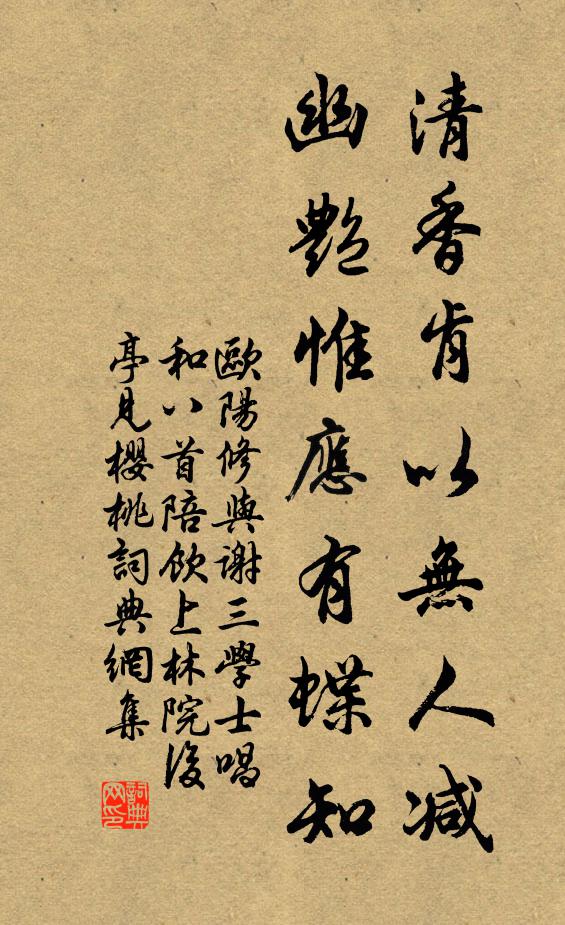 清香肯以無人減
幽艷惟應有蝶知
歐陽修與謝三學士唱
和八首陪飲上林院後
亭見櫻桃詞典網集
詞典網印